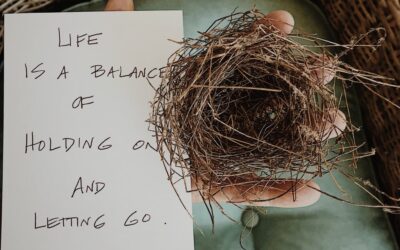 LIFE
IS A BALANCE
OF
HOLDING ON
AND
LETTING GO.